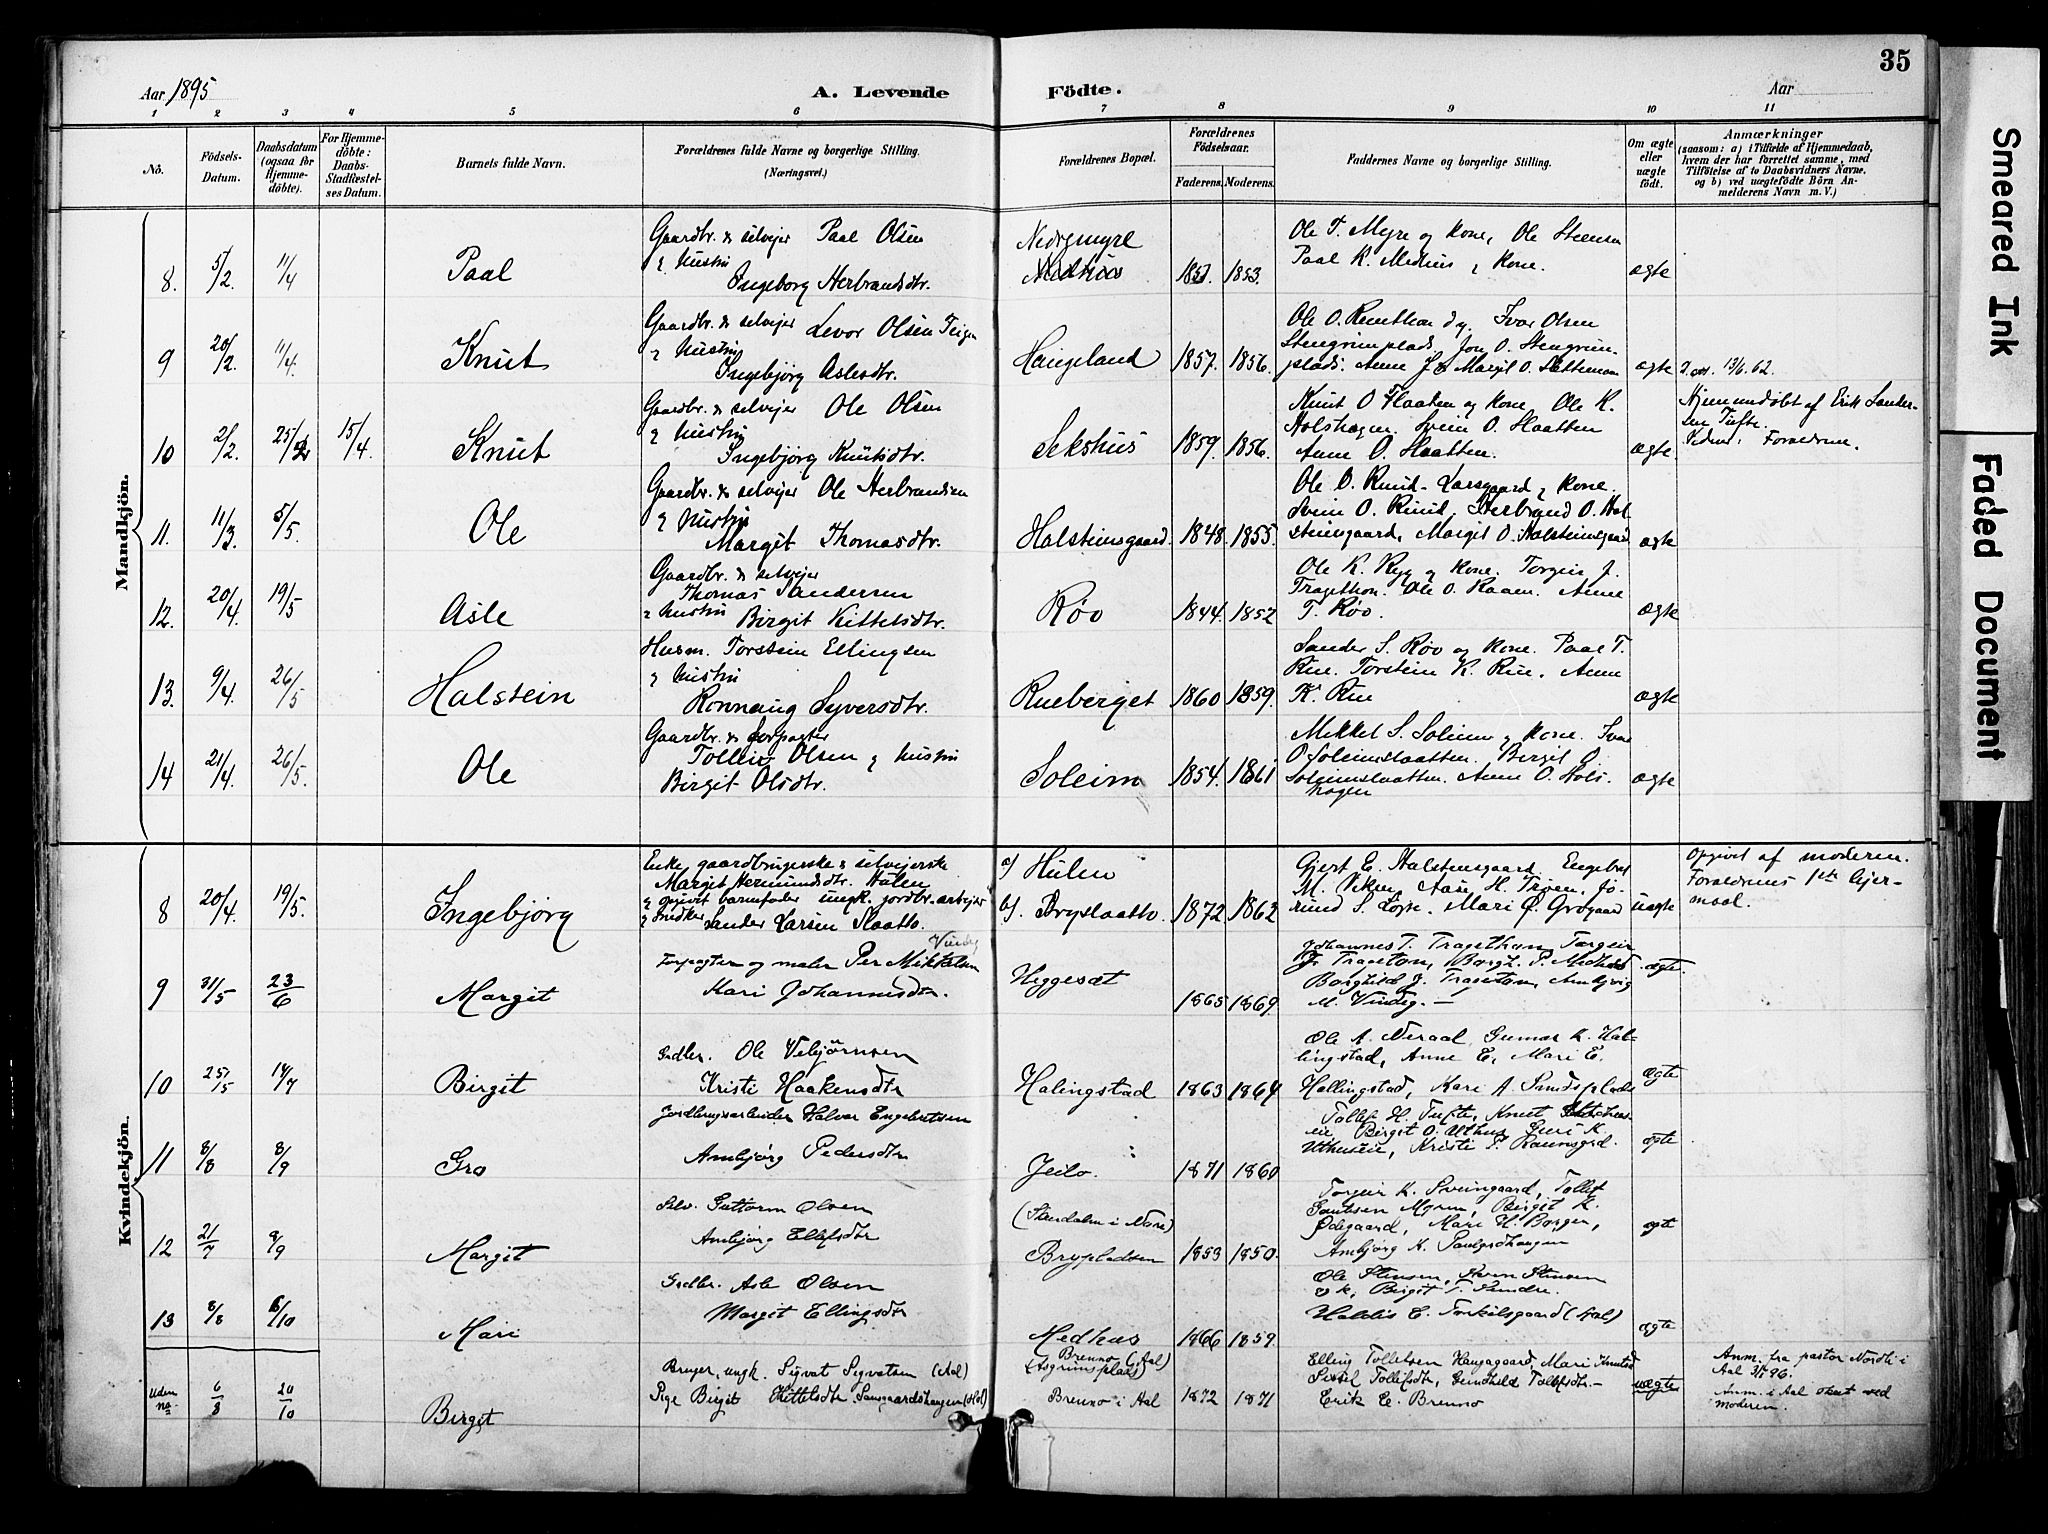 35
Aar 1895
A. Levende Födte.
Aar
1 2 3 4 5 6 7 8 9 10 11
No.
Födsels-
Datum.
Daabsdatum
(ogsaa for
Hjemme-
döbte).
For Hjemme-
döbte:
Daabs-
Stadfæstel-
ses Datum.
Barnets fulde Navn.
Forældrenes fulde Navne og borgerlige Stilling.
(Næringsvei.)
Forældrenes Bopæl.
Forældrenes
Födselsaar.
Faderens. Moderens.
Faddernes Navne og borgerlige Stilling.
Om ægte
eller
uægte
födt.
Anmærkninger
(saasom: a) i Tilfælde af Hjemmedaab,
hvem der har forrettet samme, med
Tilföielse af to Daabsvidners Navne,
og b) ved uægtefödte Börn An-
melderens Navn m. V.)
Mandkjön.
8. 5/2. 11/4 Paal
Gaardbr. & selvejer Paal Olsen
& hustru
Ingeborg Herbrandsdtr.
Nedremyre
1853.
Ole T. Myre og kone, Ole Steensen
Paal K. Medhus & kone.
ægte
9 20/2. 11/4. Knut
Gaardbr. & selvejer Levor Olsen Teigen
& hustru
Ingebjørg Aslesdtr.
Haugeland
1857. 1856.
Ivar Olsen
Jon O.
Anne
ægte
13/6. 62.
10 21/2. 15/4. Knut
Gaardbr. & selvejer Ole Olsen
& hustru
Ingebjørg Knutsdtr.
Sekshus
1859. 1856.
Knut O Flaaten og kone, Ole K.
Holshagen. Svein O. Flaatten
Anne O. Flaatten.
ægte
Hjemmedøbt af Erik Sander-
sen Tufte.
Vidner: Forældrene.
11. 11/3. 5/5. Ole
Gaardbr. & selvejer Ole Herbrandsen
& hustru
Margit Thomasdtr.
Halsteinsgaard.
1848. 1855.
Ole O. Ruud-Larsgaard & kone.
Svein O. Ruud, Herbrand O. Hal-
steinsgaard, Margit O. Halsteinsgaard
ægte
12. 20/4. 19/5 Asle
Gaardbr. & selvejer
Thomas Sandersen
& hustru Birgit Kittelsdtr.
Røo
1844. 1852
Ole K. Ryg og kone. Torgeir J.
Tragethon. Ole O. Raaen. Anne
T. Røo.
ægte
13. 9/4. 26/5 Halstein
Husm. Torstein Ellingsen
& hustru
Rønnaug Syversdtr.
Rueberget
1860 1859.
Sander S. Røo og kone. Paal T.
Rue. Torstein K. Rue. Anne
K. Rue
ægte
14 21/4. 26/5. Ole
Gaardbr. & forpagter
Tolleiv Olsen & hustru
Birgit Olsdtr.
Soleim
1854. 1861
Mikkel S. Soleim & kone. Ivar
O Soleimslaatten. Birgit O.
Soleimslaatten. Anne O. Hols-
hagen
ægte
Kvindekjön.
8 20/4. 19/5. Ingebjørg
Enke gaardbrugerske & selvejerske
Margit Hermundsdtr. Hulen
& opgivet barnefader ungk. jordbr.arbejder
& snidker Sander Larsen Slaatto.
a) Hulen
b). Bryslaatto.
1872. 1862
Gjert E. Halstensgaard. Engebret
M. Viken, Aase H. Trøen, Jo-
rund S. Mari O. Grøgaard
uægte
Opgivet af moderen.
Forældrenes 1ste lejer-
maal.
9 31/5 23/6 Margit
Forpagter og maler Per Mikkelsen Vindeg
Kari Johannesdtr.
Heggesæt
1865 1869.
Johannes T. Tragethon, Torgeir
J. Trageton, Borgh. P. Medhus
Borghild J. Tragetom,
M. Vindeg. —
ægte.
10 25/5 14/7 Birgit
Grdbr. Ole Vebjørnsen
Kristi Haakensdtr
Halingstad
1863 1864
Ole A. Neraal, Gunnar K. Hal-
lingstad, Anne E., Mari E.
Hallingstad, Kari A Sundsplads
ægte
11 8/8 8/9 Gro
Jordbrugsarbeider Halvor Engebretsen
Ambjørg Pedersdtr
Jeilo.
1871 1860
Tollef H. Tufte, Knut
eie Birget O. Uthus Guri K.
Uthuseie, Kristi P. Raunsgrd.
ægte
12 21/7 8/9 Margit
Selv. Guttorm Olsen
Ambjørg Ellefsdtr
(Stendalen i Nore)
Brypladsen
1853 1850.
Torgeir K. Sveingaard, Tollef
Myren, Birgit K.
Ødegaard, Mari H. Borgen,
Ambjørg K. Paulgrdhaugen
ægte
13 8/8 6/10 Mari
Grdbr. Asle Olsen
Margit Ellingsdtr
Medhus
1866 1859.
Ole Stensen, Svein Stensen
og k, Birget T. Sundre.
Haldis E. Torkilsgaard (Aal)
ægte
uden
no. 6/8 20/10 Birget
Bruger, ungk. Sigvat Sigvatsen (Aal)
Pige Birgit Kittelsdtr Sangaardshaugen (Hol)
Brenno (Aal)
(Asgrimsplads)
Brenno i Aal
1872 1871
Elling Tollefsen Haugagaard, Mari Knutsd
Sissel Tollefsdtr, Gunhild Tollefsdtr. —
Erik E. Brenno
uægte
Anm. fra pastor Nordli i
Aal 3/1 96.
Anm. i Aal skeet ved
moderen.
Smeared Ink
Faded Document